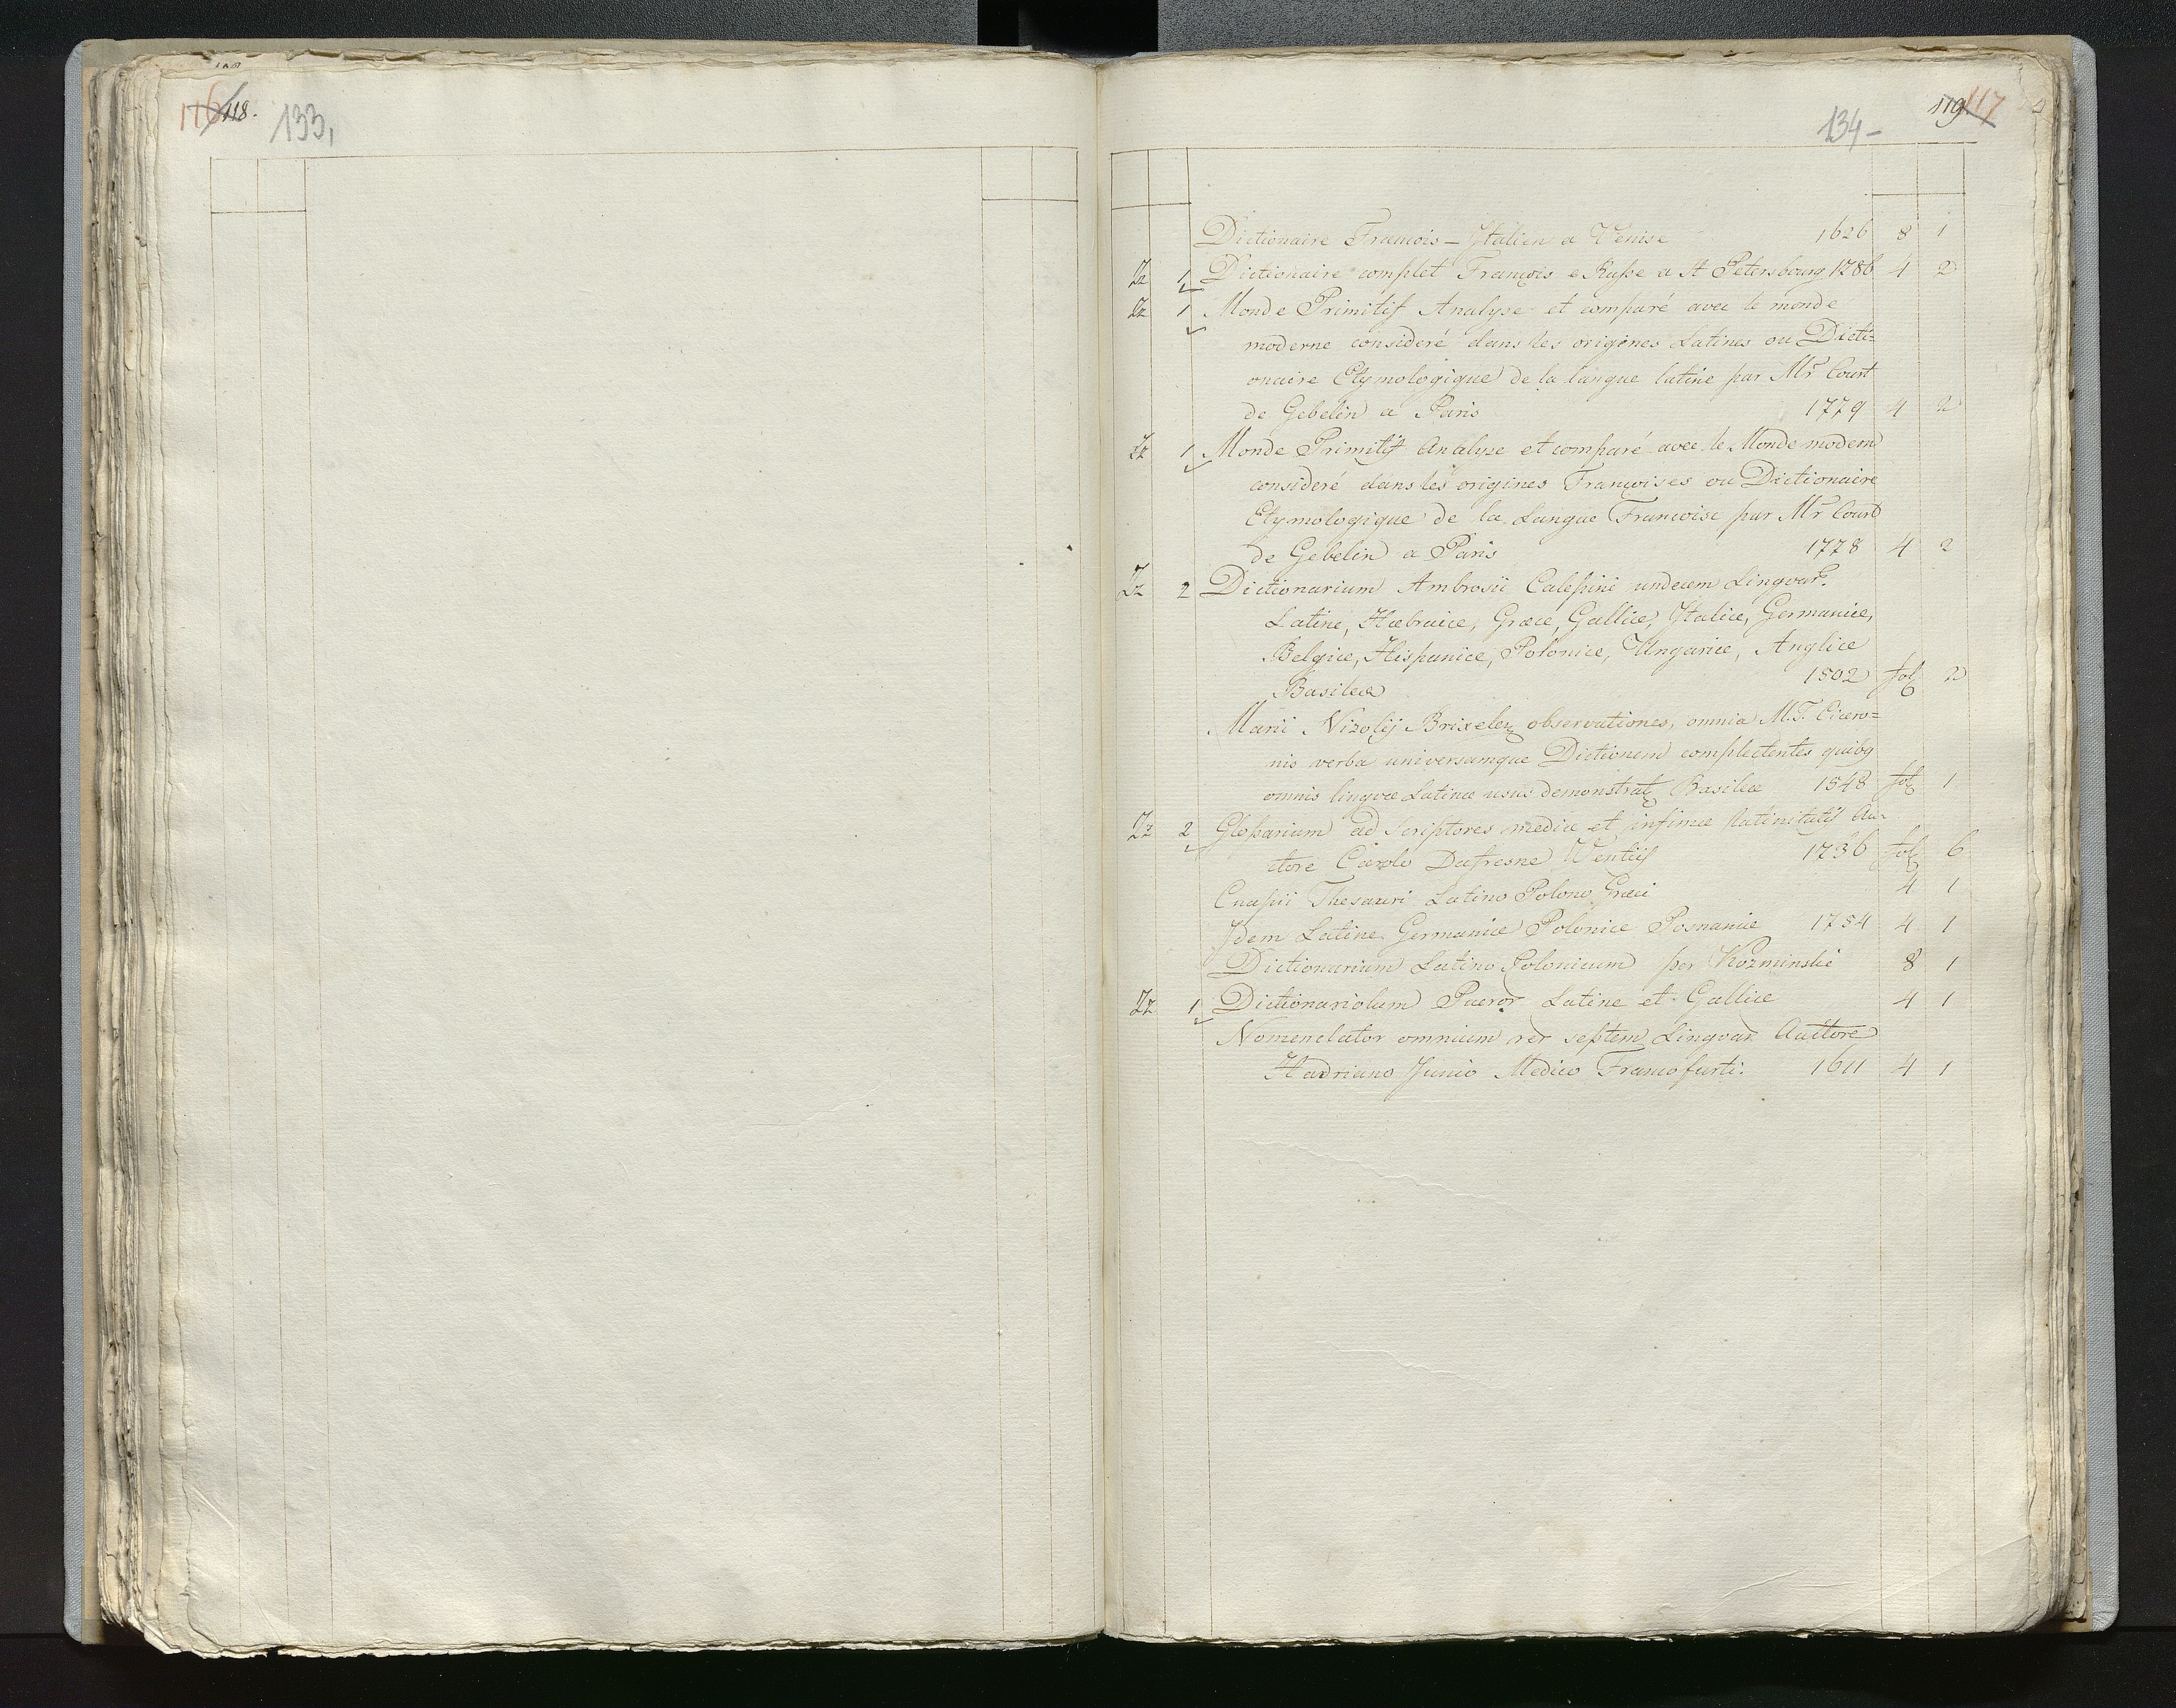 116 118. 133,
134- 119. 117
Dictionaire Francois - Italien a Venise 1626 8 1
Zz 1 Dictionaire complet François e Russe a St Petersbourg 1786 4 2
Zz 1 Monde Primitif Analyse et comparé avec le monde
moderne consideré dans les origines Latines ou Dicti=
onaire Etymologique de la langue latine par Mr Court
de Gebelin a Paris 1779 4 2
Zz 1 Monde Primitif Analyse et comparé avec le Monde modern
consideré dans les origines Françoises ou Dictionaire
Etymologique de la Langue Francoise par Mr Court
de Gebelin a Paris 1778 4 2
Zz 2 Dictionarium Ambrosii Calepini undecem Lingvar.
Latine, Hæbraice, Græce, Gallice, Italice, Germanice,
Belgice, Hispanice, Polonice, Ungarice, Anglice
Basileæ 1502 fol 2
Marii Nizolij observationes, omnia M.T. Cicero=
nis verba universamque Dictionem complectentes quibq
omnis lingvæ Latinæ usus demonstratq Basileæ 1548 fol 1
Zz 2 Glossarium ad Scriptores mediæ et infimæ latinitatis Au-
ctore Carolo Dufresne 1736 fol 6
Cnapii Thesauri Latino Polono Græci 4 1
Idem Latine Germanice Polonice Posnaniæ 1754 4 1
Dictionarium Latino Polonicum per Kozminski 8 1
Zz 1 Dictionariolum Pueror Latine et Gallice 4 1
Nomenclator omnium rer septem Lingvar Auctore
Hadriano Junio Medico Francofurti. 1611 4 1